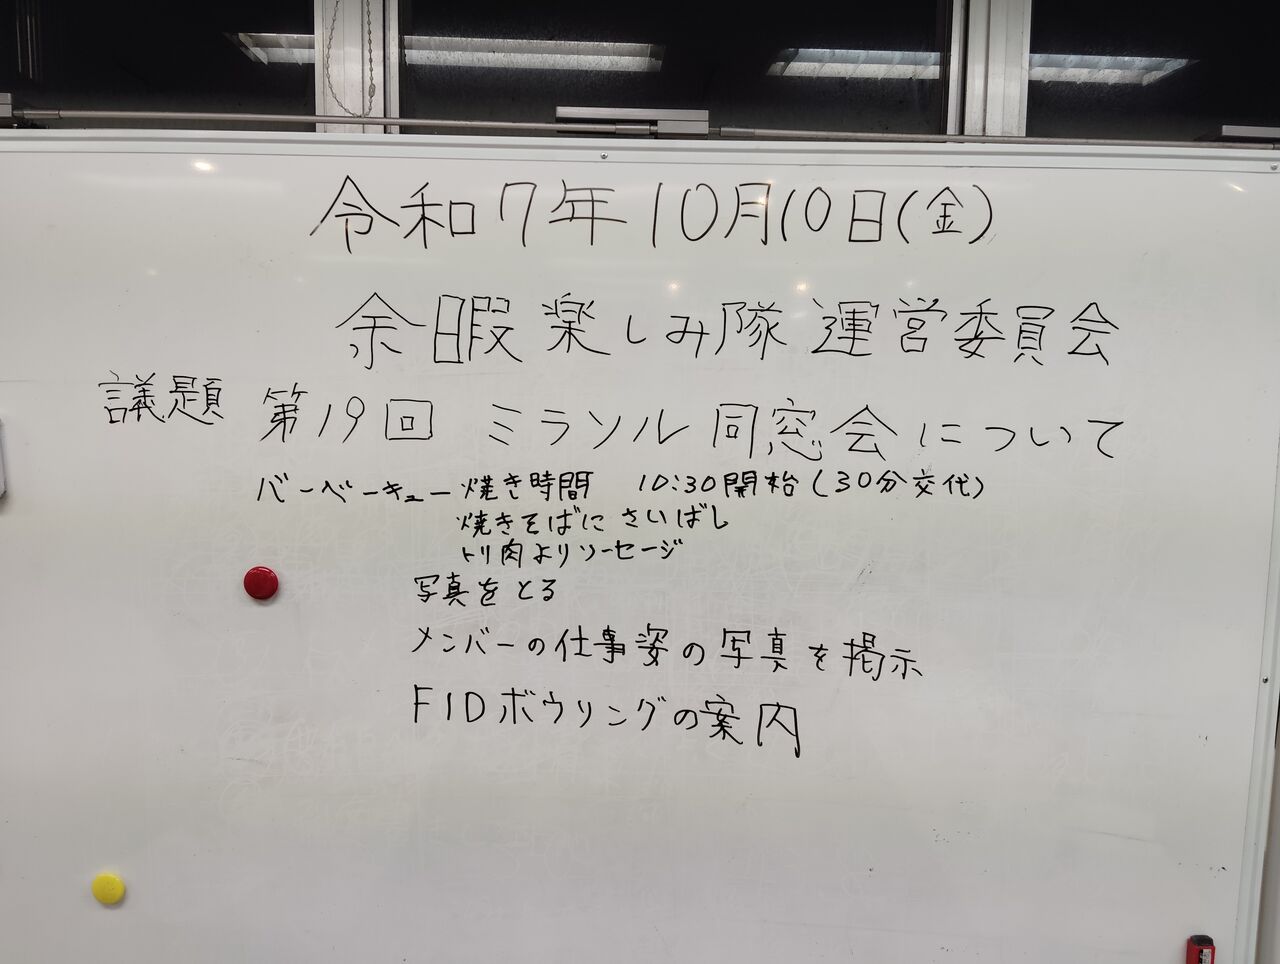 令和7年10月10日(金)
余暇楽しみ隊運営委員会
議題 第19回 ミラソル同窓会について
バーベーキュー焼き時間 10:30開始(30分交代)
焼きそばに さいばし
トリ肉よりソーセージ
写真をとる
メンバーの仕事姿の写真を掲示
FIDボウリングの案内